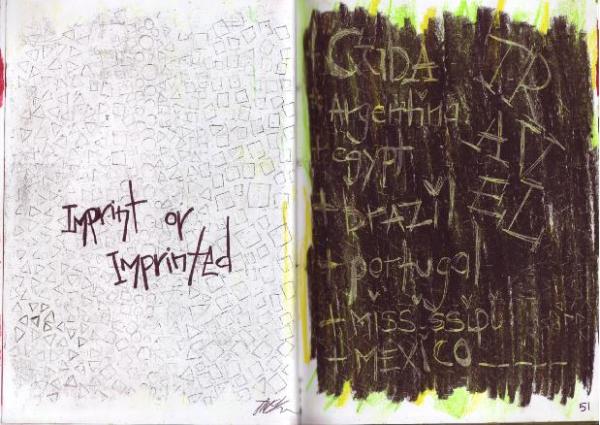 Imprint or
Imprinted
+ CUBA
+ Argentina.
+ egypt
+ BRAZil
+ portugal
+ MiSSiSSipi
+ MEXiCO
TR
AV
EL
51